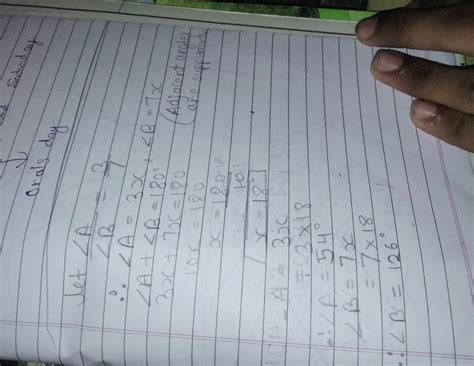 Saturday
Orals day
let ∠A/∠B = 3/7
∴ ∠A = 3x, ∠B = 7x
∠A + ∠B = 180° (Adjacent angles are supplementary)
3x + 7x = 180
10x = 180
x = 180°/10
x = 18°
∠A = 3x
= 3 x 18
∴ ∠A = 54°
∠B = 7x
= 7 x 18
∴ ∠B = 126°